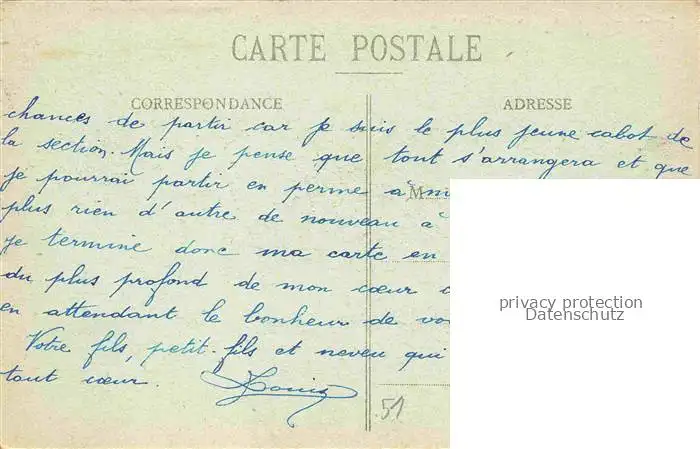 CARTE POSTALE
CORRESPONDANCE
ADRESSE
chances de partir car je suis le plus jeune cabot de
la section. Mais je pense que tout s'arrangera et que
je pourrai partir en perme à
M
plus rien d'autre de nouveau à
je termine donc ma carte en
du plus profond de mon cœur
en attendant le bonheur de
Votre fils, petit-fils et neveu qui
tout cœur. Louis
51
privacy protection
Datenschutz